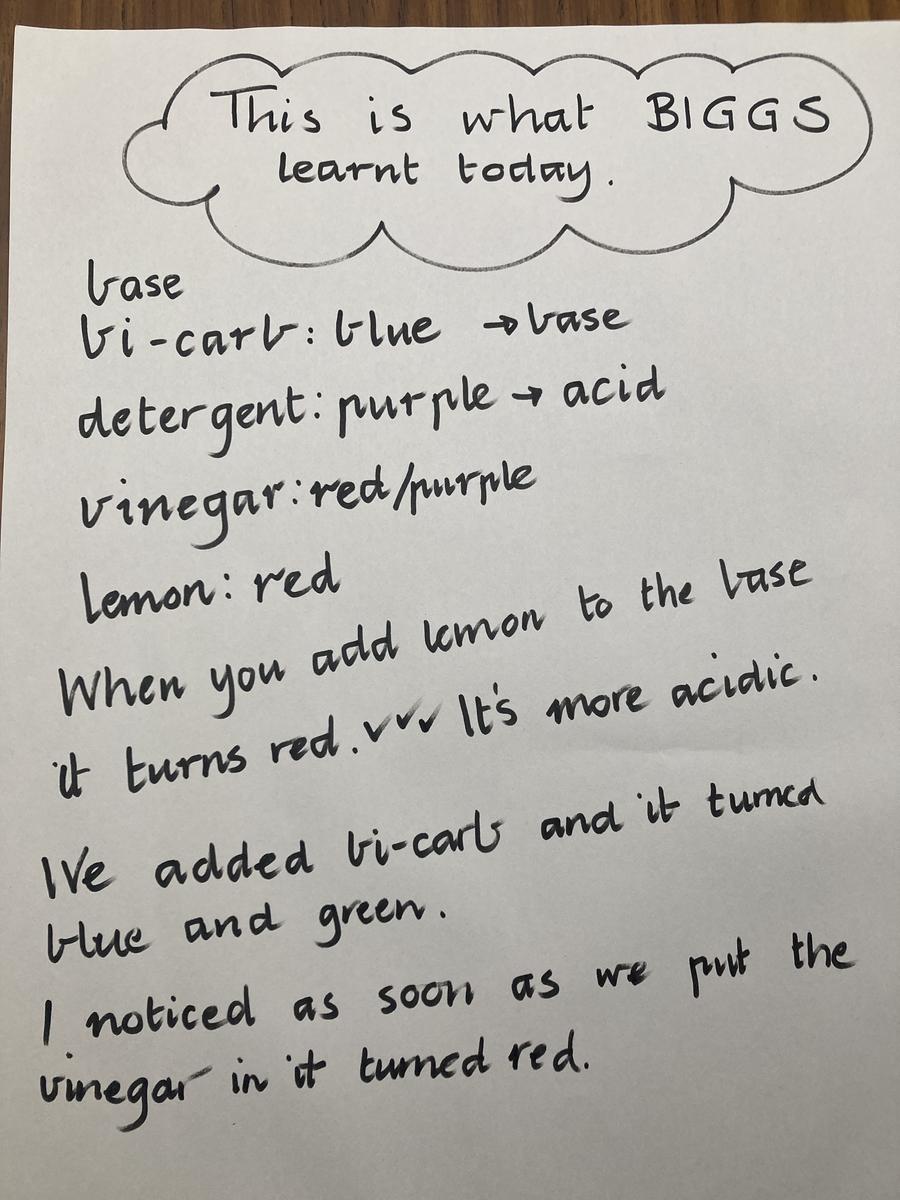 This is what BIGGS
learnt today.
base
bi-carb: blue → base
detergent: purple → acid
vinegar: red/purple
lemon: red
When you add lemon to the base
it turns red. ✓✓✓ It's more acidic.
I've added bi-carb and it turned
blue and green.
I noticed as soon as we put the
vinegar in it turned red.